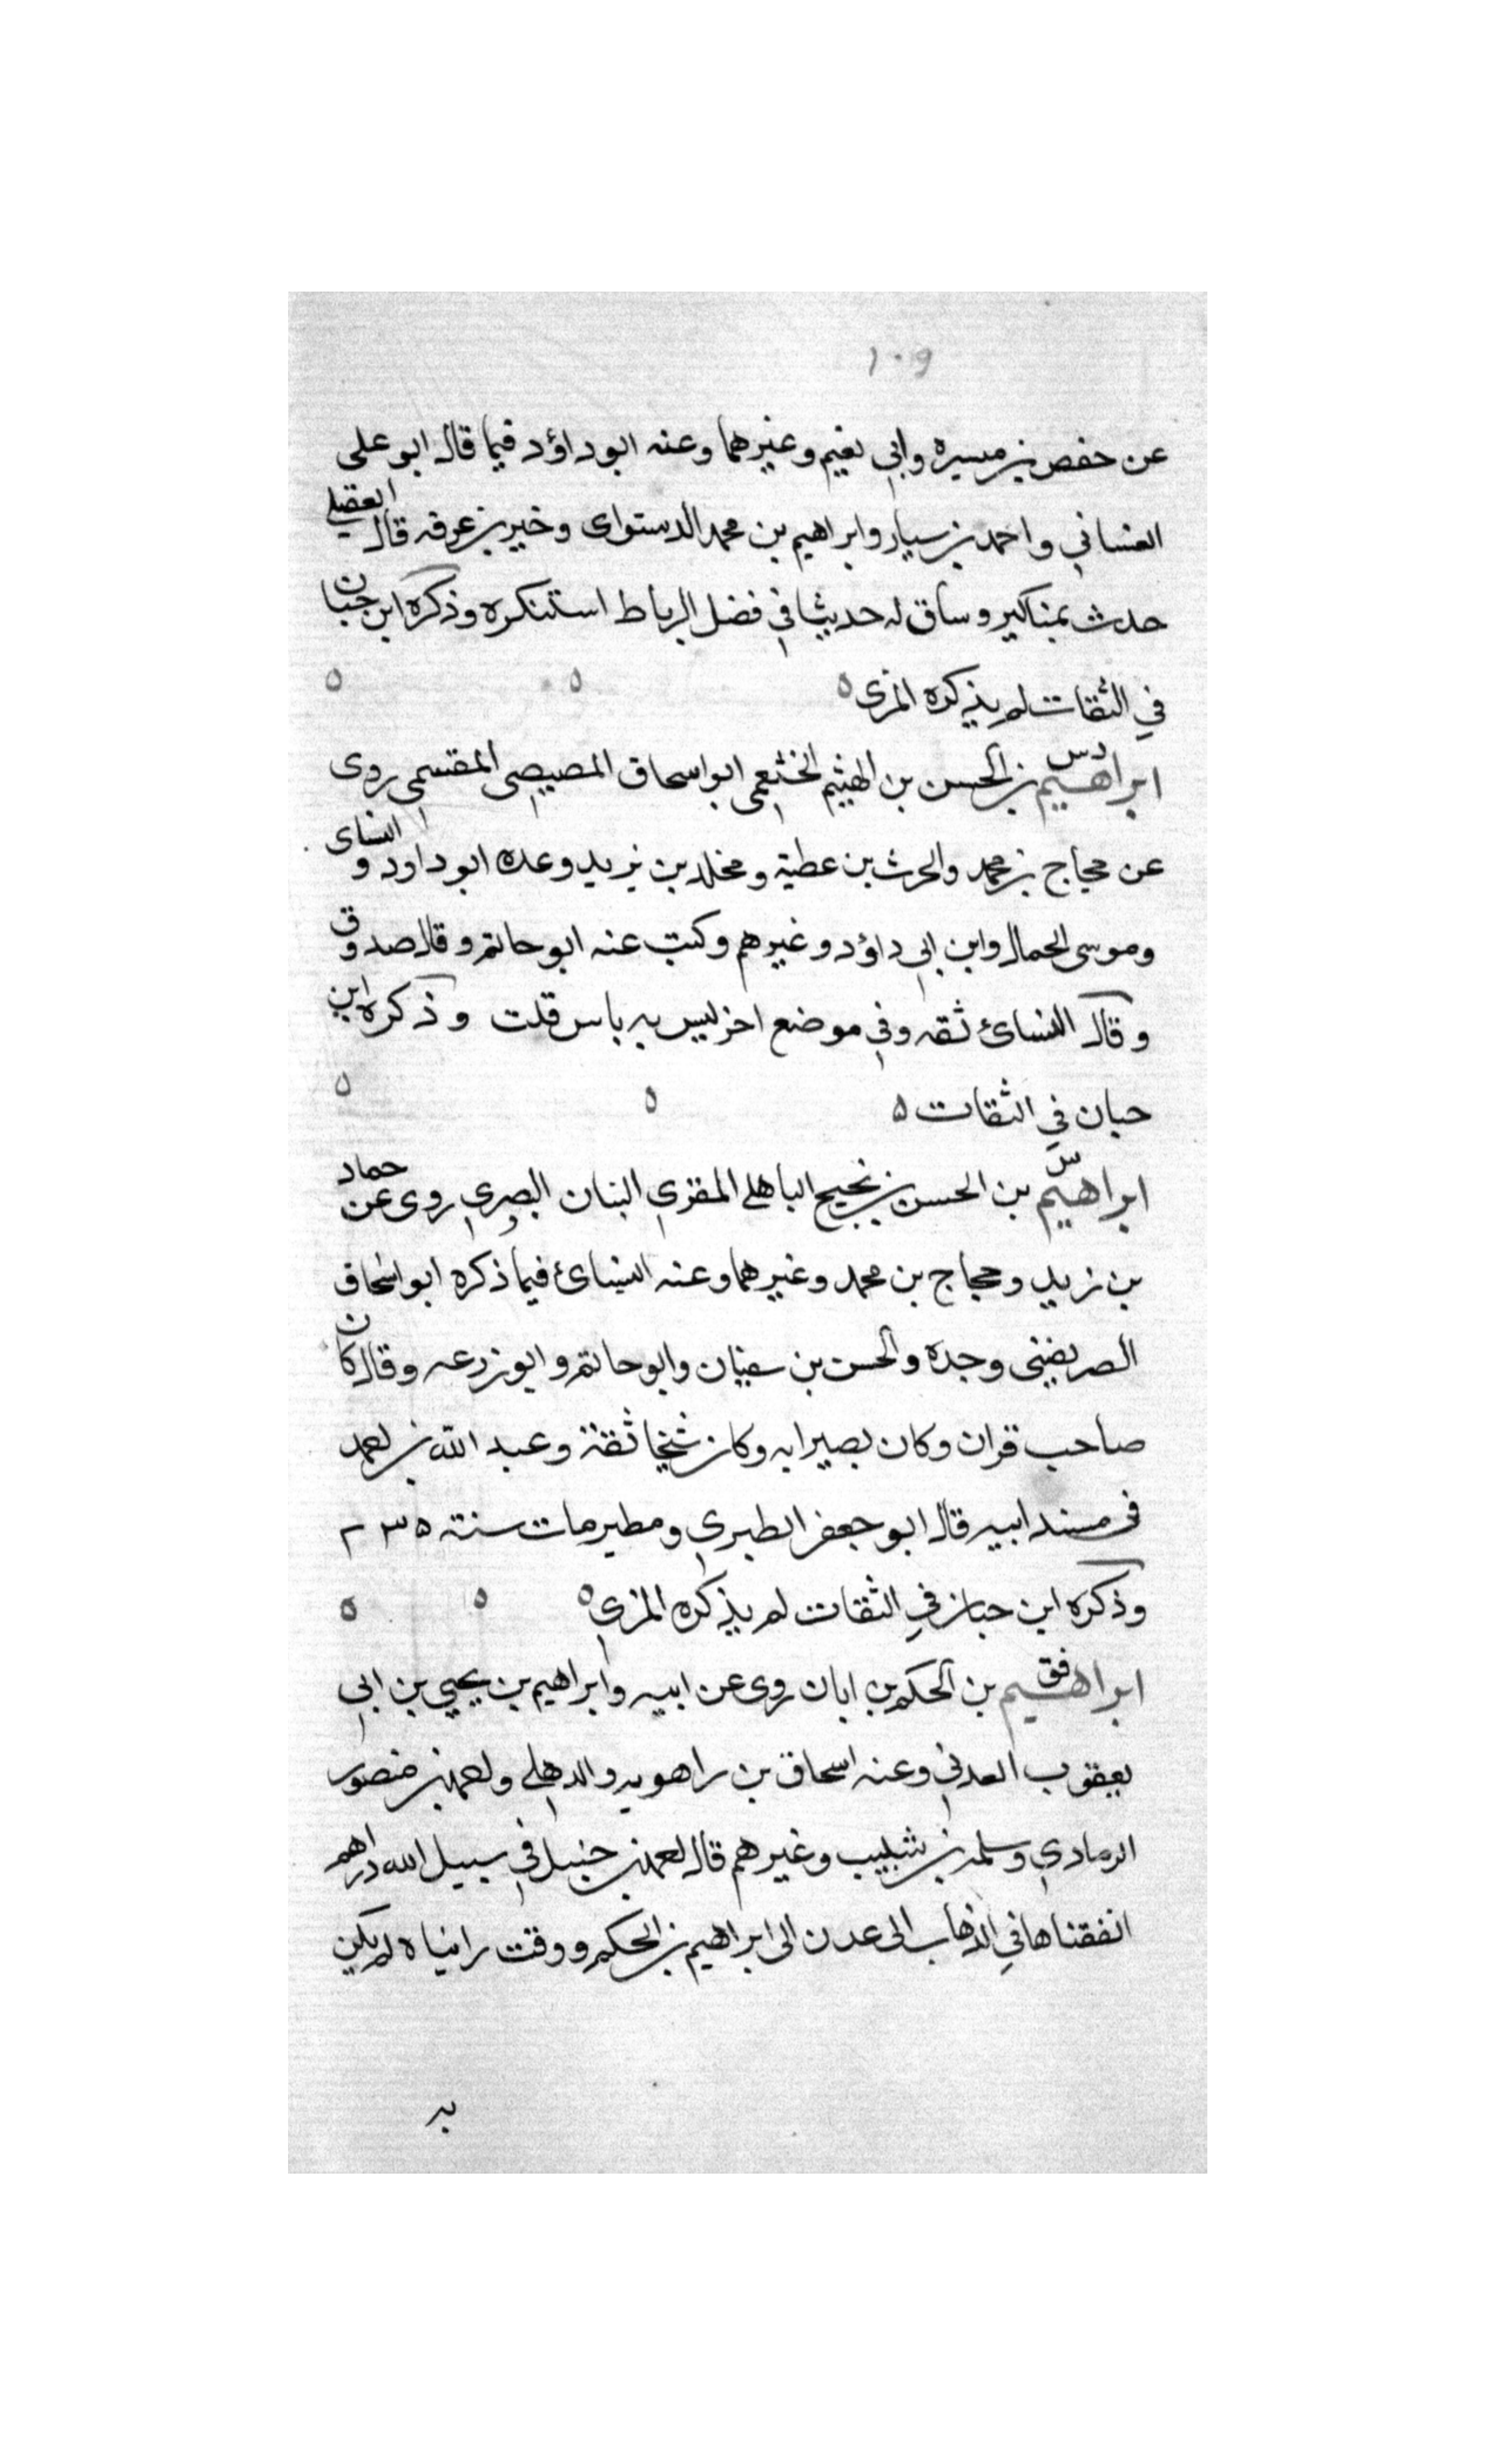 ١٠٩
عن حفص بن ميسره وابي نعيم وغيرهما وعنه ابو داؤد فيما قال ابو على
الغساني واحمد بن سيار وابراهيم بن محمد الدستواى وخير بن عرفه قال العقيلي
حدث بمناكير وساق له حديثا في فضل الرباط استنكره وذكره ابن حبان
في الثقات لم يذكره المزى ه ه ه
ابراهيم دس بن الحسن بن الهيثم الخثعمى ابو اسحاق المصيصى المقسمى روى
عن حجاج بن محمد والحرث بن عطية ومخلد بن يزيد وعنه ابو داود و النساى
وموسى الحمال وابن ابي داؤد وغيرهم وكتب عنه ابو حاتم وقال صدوق
وقال النسائ ثقه وفي موضع اخر ليس به باس قلت وذكره ابن
حبان في الثقات ه ه ه
ابراهيم س بن الحسن بن نجيح الباهلي المقرى البنان البصرى روى عن حماد
بن زيد وحجاج بن محمد وغيرهما وعنه النسائ فيما ذكره ابو اسحاق
الصريفينى وجده والحسن بن سفيان وابو حاتم وابو زرعه وقال كان
صاحب قران وكان بصيرا به وكان شيخا ثقة وعبد الله بن احمد
فى مسند ابيه قال ابو جعفر الطبرى ومطير مات سنة ٢٣٥
وذكره ابن حبان في الثقات لم يذكره المزى ه ه ه
ابراهيم فق بن الحكم بن ابان روى عن ابيه وابراهيم بن يحيى بن ابى
يعقوب العدني وعنه اسحاق بن راهويه والدهلي واحمد بن منصور
الرمادي وسلمه بن شبيب وغيرهم قال احمد بن حنبل في سبيل الله دراهم
انفقناها في الذهاب الى عدن الى ابراهيم بن الحكم ووقت رايناه لم يكن
به